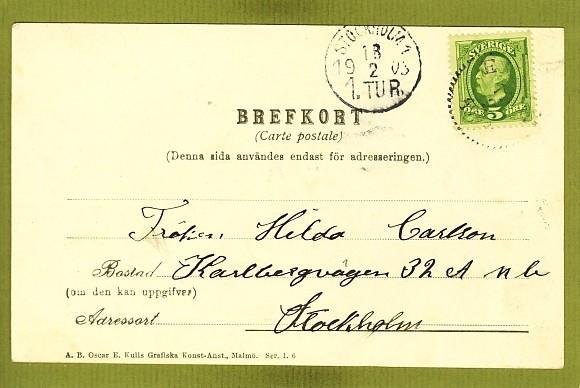 STOCKHOLM 1
18
19 2 03
1. TUR.
SVERIGE
ÖRE 5 ÖRE
BREFKORT
(Carte postale)
(Denna sida användes endast för adresseringen.)
Fröken Hilda Carlson
Bostad Karlbergvägen 32 A n b
(om den kan uppgifvas)
Adressort Stockholm
A. B. Oscar E. Kulls Grafiska Konst-Anst., Malmö. Ser. 1. 6